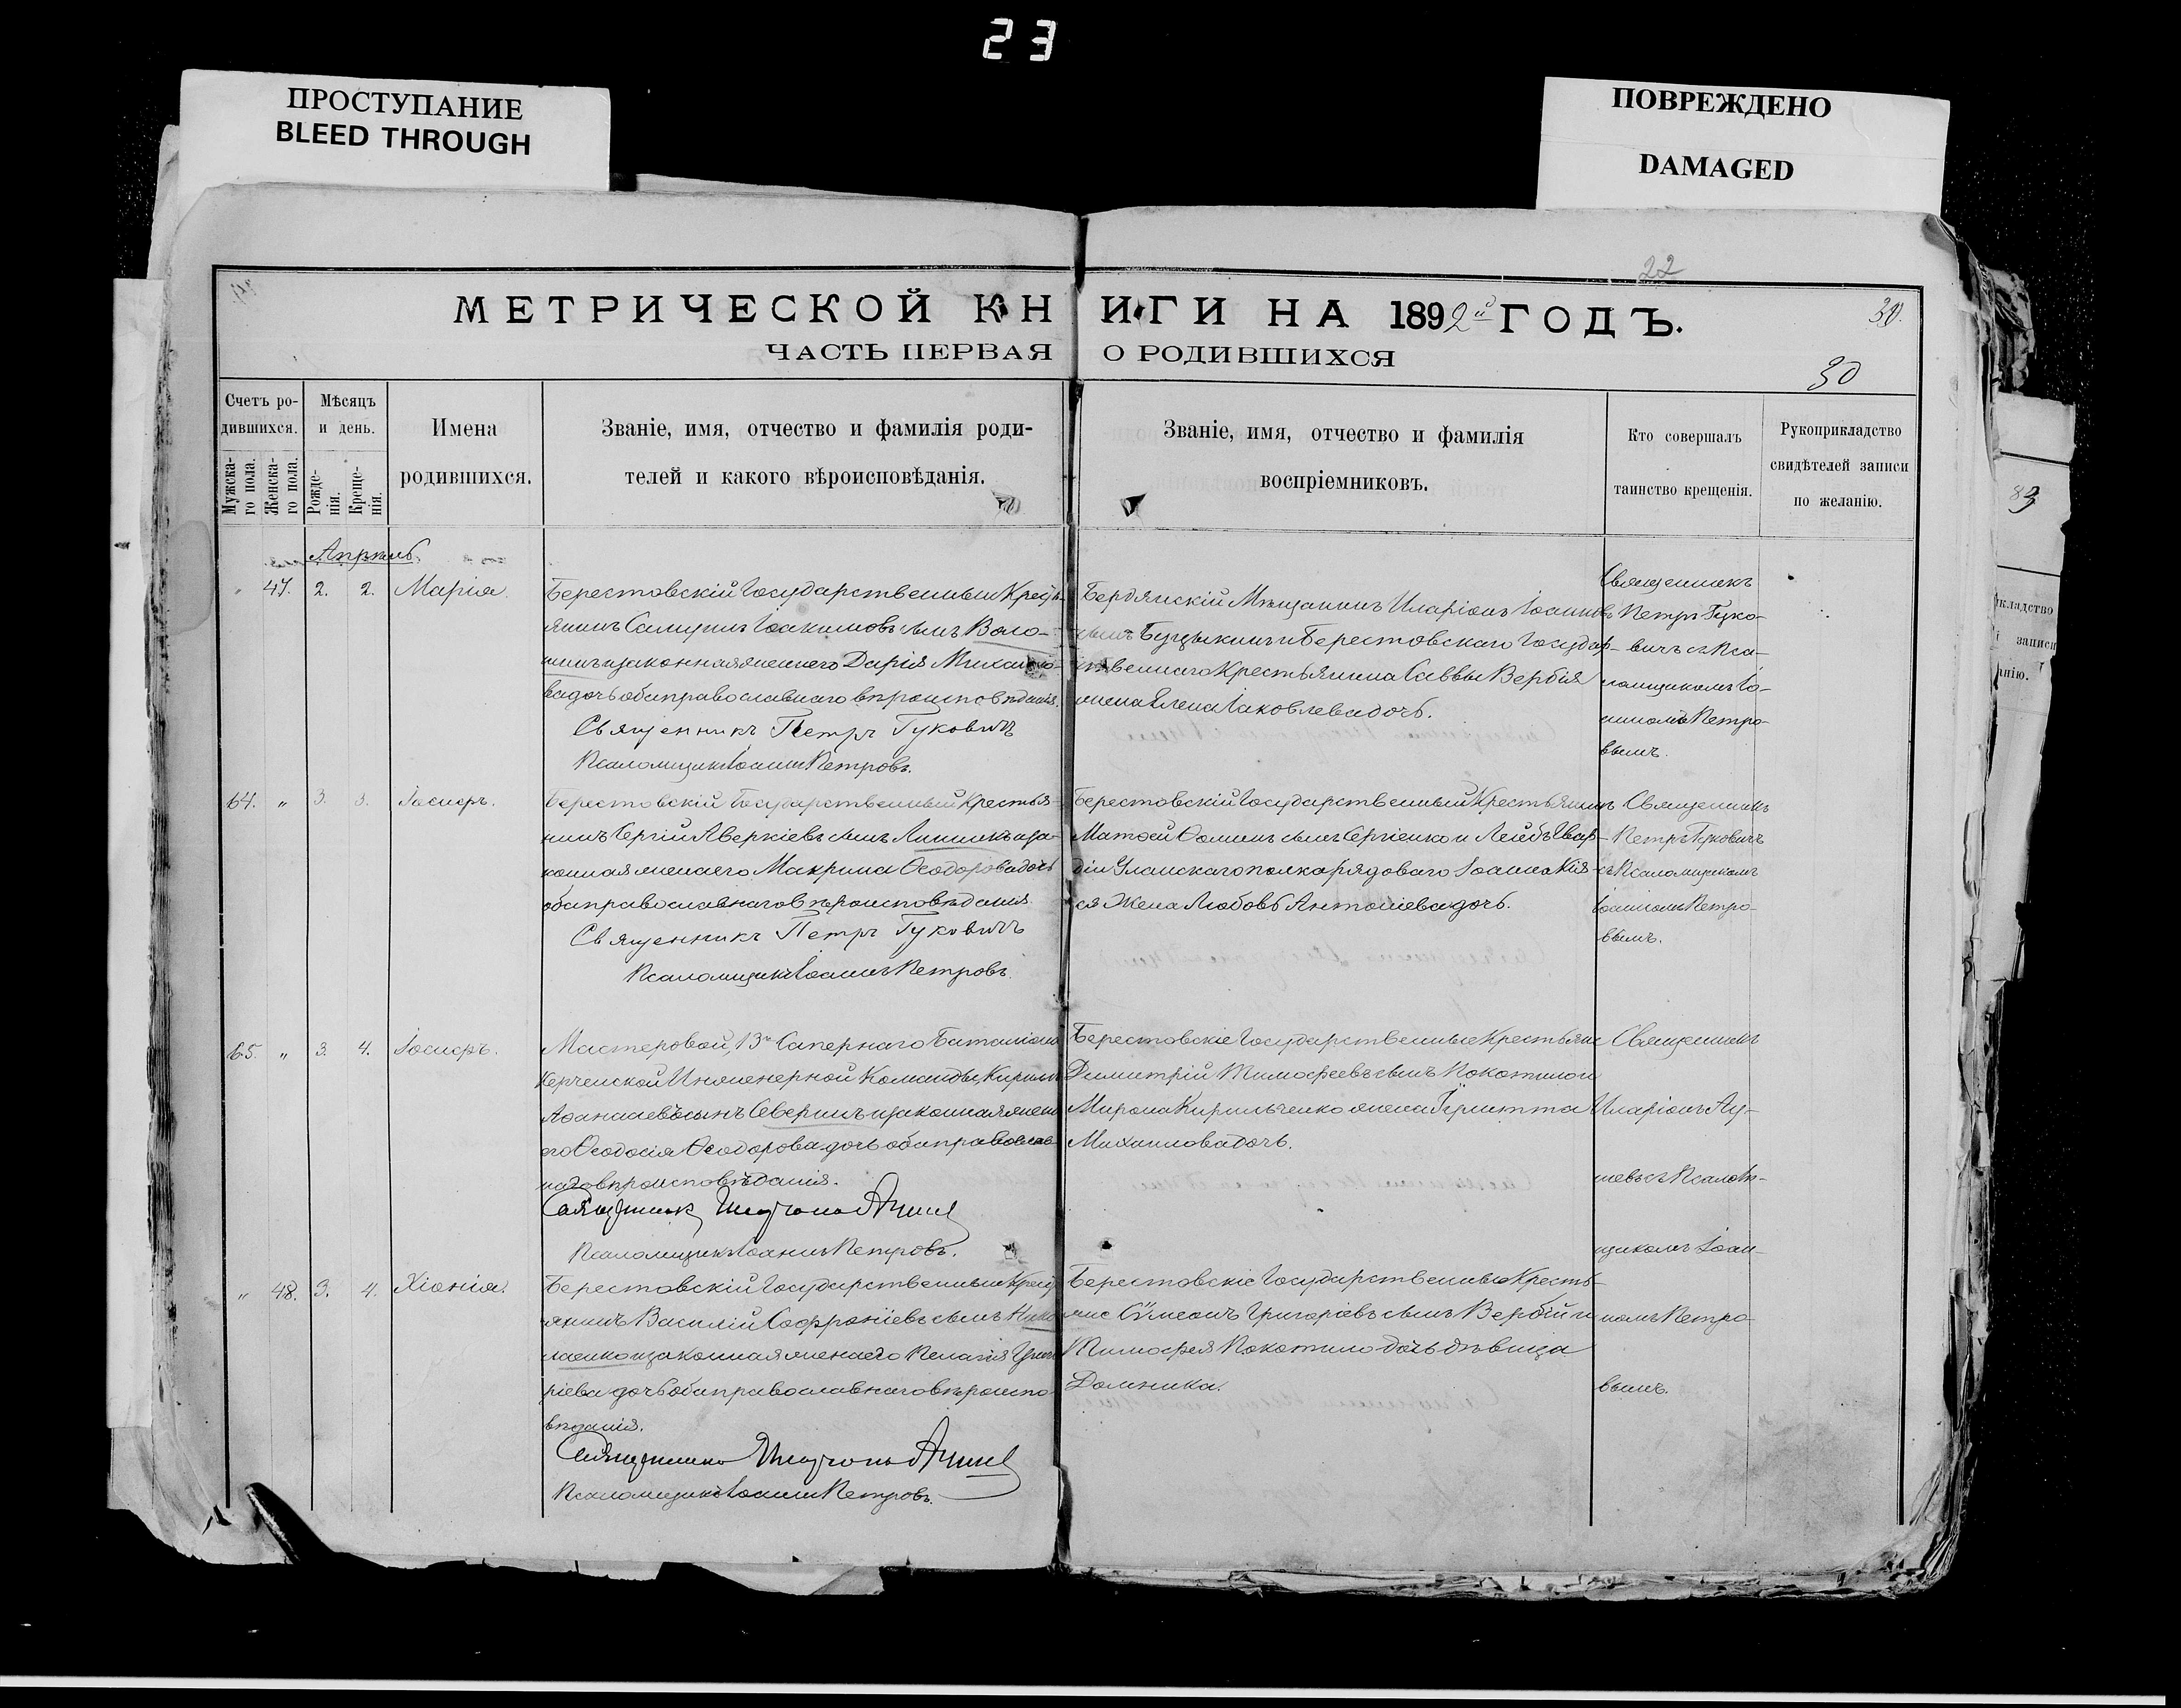 23
ПРОСТУПАНИЕ
BLEED THROUGH
ПОВРЕЖДЕНО
DAMAGED
22
МЕТРИЧЕСКОЙ КНИГИ НА 1892й ГОДЪ.
30.
ЧАСТЬ ПЕРВАЯ О РОДИВШИХСЯ
30
Счетъ ро-
дившихся.
Мужска-
го пола.
Женска-
го пола.
Мѣсяцъ
и день.
Рожде-
нія.
Креще-
нія.
Имена
родившихся.
Званіе, имя, отчество и фамилія роди-
телей и какого вѣроисповѣданія.
Званіе, имя, отчество и фамилія
воспріемниковъ.
Кто совершалъ
таинство крещенія.
Рукоприкладство
свидѣтелей записи
по желанію.
Апрѣль
" 47. 2. 2. Марія.
Берестовскій Государственный Кресть-
янинъ Самуилъ Іоакимовъ сынъ Воло-
шинъ и законная жена его Дарія Михайло-
ва дочь оба православнаго вѣроисповѣданія.
Священникъ Петръ Гуковичъ
Псаломщикъ Іоаннъ Петровъ.
Бердянскій Мѣщанинъ Иларіонъ Іоанновъ
сынъ и Берестовскаго Государ-
ственнаго Крестьянина Саввы Вербія
жена Елена Іаковлева дочь.
Священникъ
Петръ Гуко-
вичъ съ Пса-
ломщикомъ Іо-
анномъ Петро-
вымъ.
64. " 3. 3. Іосифъ.
Берестовскій Государственный Крестья-
нинъ Сергій Аверкіевъ сынъ Линникъ и за-
конная жена его Макрина Ѳеодорова дочь
оба православнаго вѣроисповѣданія
Священникъ Петръ Гуковичъ
Псаломщикъ Іоаннъ Петровъ.
Берестовскій Государственный Крестьянинъ
Матѳей Ѳоминъ сынъ Сергіенко и Лейбъ Гвар-
діи Уланскаго полка рядоваго Іоанна Кія-
ся жена Любовь Антоніева дочь.
Священникъ
Петръ Гуковичъ
съ Псаломщикомъ
Іоанномъ Петро-
вымъ.
65. " 3. 4. Іосифъ.
Мастеровой, 13го Сапернаго Баталіона
Керченской Инженерной Команды, Кириллъ
Аѳанасіевъ сынъ Северинъ и законная жена
его Ѳеодосія Ѳеодорова дочь оба православ-
наго вѣроисповѣданія.
Священникъ Иларіонъ
Псаломщикъ Іоаннъ Петровъ.
Берестовскіе Государственные Крестьяне
Димитрій Тимоѳеевъ сынъ Покотило и
Мирона Кирильченко жена
Михаилова дочь.
Священникъ
Иларіонъ
съ Псалом-
щикомъ Іоан-
номъ Петро-
вымъ.
" 48. 3. 4. Хіонія.
Берестовскій Государственный Кресть-
янинъ Василій Софроніевъ сынъ Нико-
лаенко и законная жена его Пелагія Григо-
ріева дочь оба православнаго вѣроиспо-
вѣданія.
Священникъ Иларіонъ
Псаломщикъ Іоаннъ Петровъ.
Берестовскіе Государственные Кресть-
яне Сѵмеонъ Григоріевъ сынъ Вербій и
Тимоѳея Покотило дочь дѣвица
Домника.
83
записи